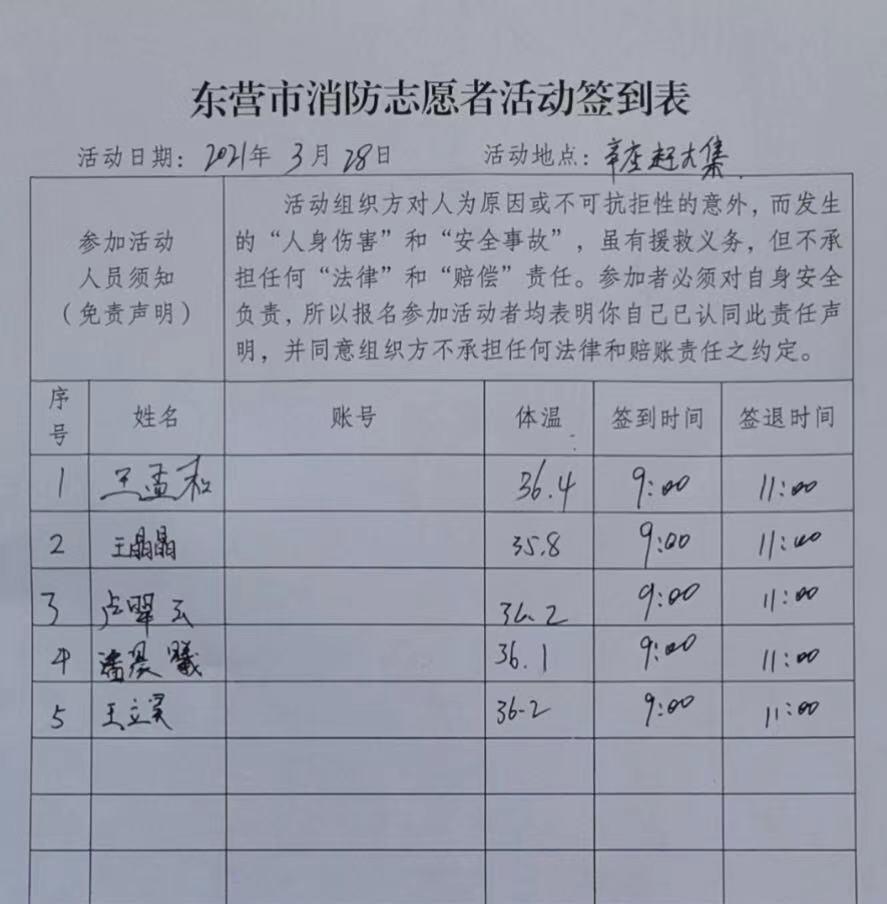 东营市消防志愿者活动签到表
活动日期：2021年 3月 28日 活动地点：辛庄赶大集
参加活动
人员须知
（免责声明）
活动组织方对人为原因或不可抗拒性的意外，而发生
的“人身伤害”和“安全事故”，虽有援救义务，但不承
担任何“法律”和“赔偿”责任。参加者必须对自身安全
负责，所以报名参加活动者均表明你自己已认同此责任声
明，并同意组织方不承担任何法律和赔账责任之约定。
序号 姓名 账号 体温 签到时间 签退时间
1 王孟 36.4 9:00 11:00
2 王晶晶 35.8 9:00 11:00
3 卢翠云 36.2 9:00 11:00
4 潘晨曦 36.1 9:00 11:00
5 王立 36.2 9:00 11:00